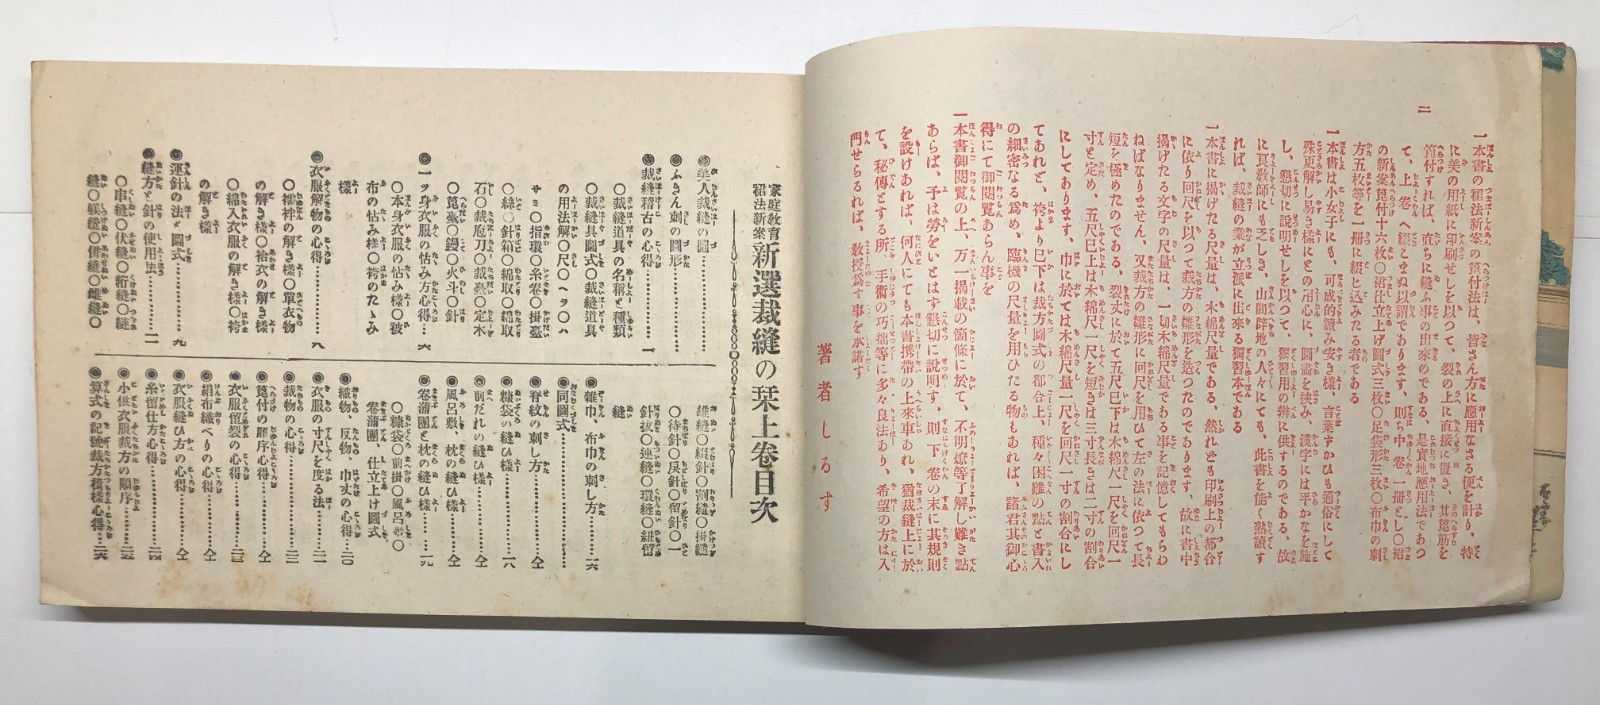 二
一本書の裙法新案の箆付法は、皆さん方に應用なさる便を計り、特
に美の用紙に印刷せしを以つて、裂の上に直接に置き、其箆筋を
箆付すれば、直ちに縫ふ事の出來のである、是實地應用法であつ
て、上卷へ綴こまぬ以謂であります、則ち中卷一冊とし〇沼
の新案箆付十六枚〇沼仕立上げ圖式三枚〇足袋形三枚〇布巾の刺
方五枚等を一冊に綴じ込みたる者である
一本書は小女子にも、可成的讀み安き樣、言葉ずかひも通俗にして
殊更解し易き樣にとの用心に、圖畫を挾み、漢字には平かなを施
し、懇切に説明せしを以つて、獨習用の料に供するのである、故
に良敎師にも乏しき、山間僻地の人々にても、此書を能く熟讀す
れば、裁縫の業が立派に出來る獨習本である
一本書に揭げたる尺量は、木綿尺量である、然れども印刷上の都合
に依り回尺を以つて裁方の雛形を造つたのであります、故に書中
揭げたる文字の尺量は、一切木綿尺量である事を記憶してもらわ
ねばなりません、又裁方の雛形に回尺を用ひて左の法に依つて長
短を極めたのである、裂丈に於て五尺巳下は木綿八一尺を回尺一
寸と定め、五尺巳上は木綿尺一尺を短きは三寸長きは二寸の割合
にしてあります、巾に於ては木綿尺量一尺を回尺一寸の割合にし
てあれど、袴より巳下は裁方圖式の都合上、種々困難の點と書入
の細密なる爲め、臨機の尺量を用ひたる物もあれば、諸君其御心
得にて御閲覽あらん事を
一本書御閲覽の上、万一揭載の箇條に於て、不明燎等了解し難き點
あらば、予は勞をいとはす懇切に説明す、則下卷の末に其規則
を設けあれば、何人にても本書携帶の上來車あれ、猶裁縫上に於
て、秘傳とする所、手術の巧拙等に多々良法あり、希望の方は入
門せらるれば、敎授爲す事を承諾す
著者しるす
家庭敎育
裙法新案
新選裁縫の栞上卷目次
美人裁縫の圖
ふきん刺の圖形
裁縫稽古の心得……一
〇裁縫道具の名稱と種類
〇裁縫具圖式〇裁縫道具
の用法解〇尺〇ヘラ〇ハ
サミ〇指環〇糸卷〇掛臺
〇絲〇針箱〇綿取〇綿取
石〇裁庖刀〇裁臺〇定木
〇箆臺〇鏝〇火斗〇針
一ツ身衣服の怗み方心得…六
〇本身衣服の怗み樣〇被
布の怗み樣〇袴のたゝみ
樣
衣服解物の心得……八
〇襦袢の解き樣〇單衣物
の解き樣〇袷衣の解き樣
〇綿入衣服の解き樣〇袴
の解き樣
運針の法と圖式……九
縫方と針の使用法……一一
〇串縫〇伏縫〇絎縫〇縺
縫〇躾縫〇併縫〇雌縫〇
〇待針〇戻針〇留針〇一
針拔〇連縫〇環縫〇紐留
縫
雜巾、布巾の刺し方……一六
同圖式……仝
脊紋の刺し方……仝
糠袋の縫ひ樣……一八
前だれの縫ひ樣……仝
風呂敷、枕の縫ひ樣……仝
卷蒲團と枕の縫ひ樣……一九
〇糠袋〇前掛〇風呂敷〇
卷蒲團、仕立上げ圖式
織物、反物、巾丈の心得…二〇
衣服の寸尺を度る法……二一
裁物の心得……二二
箆付の順序心得……仝
衣服留裂の心得……二三
絹布織べりの心得……仝
衣服縫ひ方の心得……仝
糸留仕方心得……二四
小供衣服裁方の順序……二五
算式の記號裁方積樣心得…二六